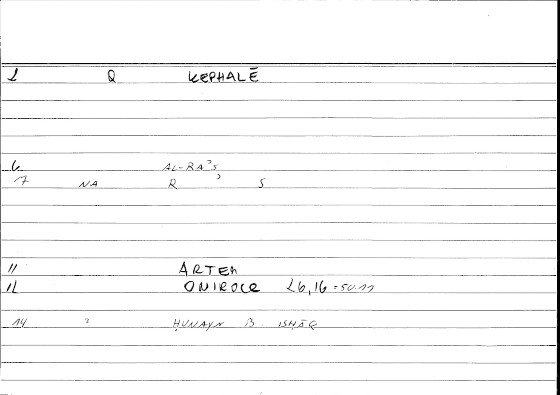 1 Q KEPHALĒ
6 AL-RAʾS
7 NA R ʾ S
11 ARTEM
12 ONIROCR 26,16 = 50.11
14 2 ḤUNAYN B. ISḤĀQ